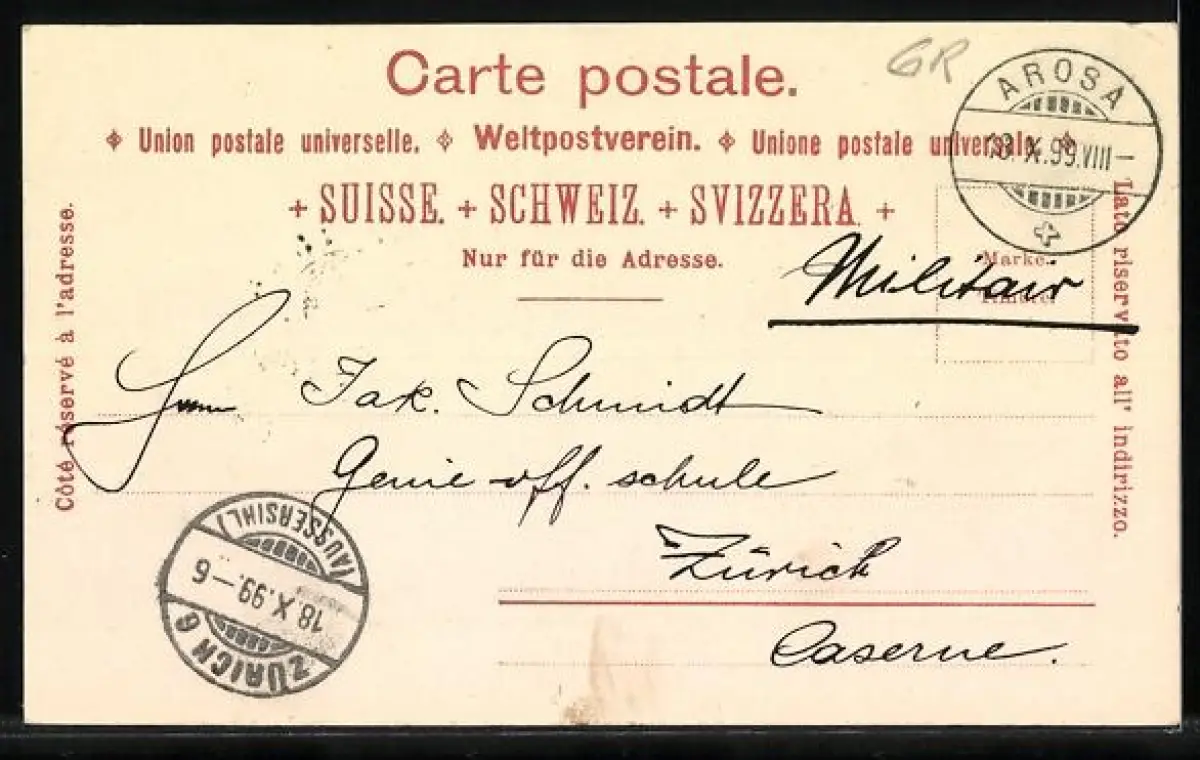 GR
Carte postale.
Union postale universelle. Weltpostverein. Unione postale universale.
+ SUISSE. + SCHWEIZ. + SVIZZERA. +
Nur für die Adresse.
AROSA
18. X. 99. VIII –
Marke.
Timbre.
Militair
Côté réservé à l'adresse.
Lato riservato all' indirizzo.
Herrn Jak. Schmidt
Genie off. schule
Zürich
Caserne.
(AUSSERSIHL)
18. X. 99 – 6
ZÜRICH 6